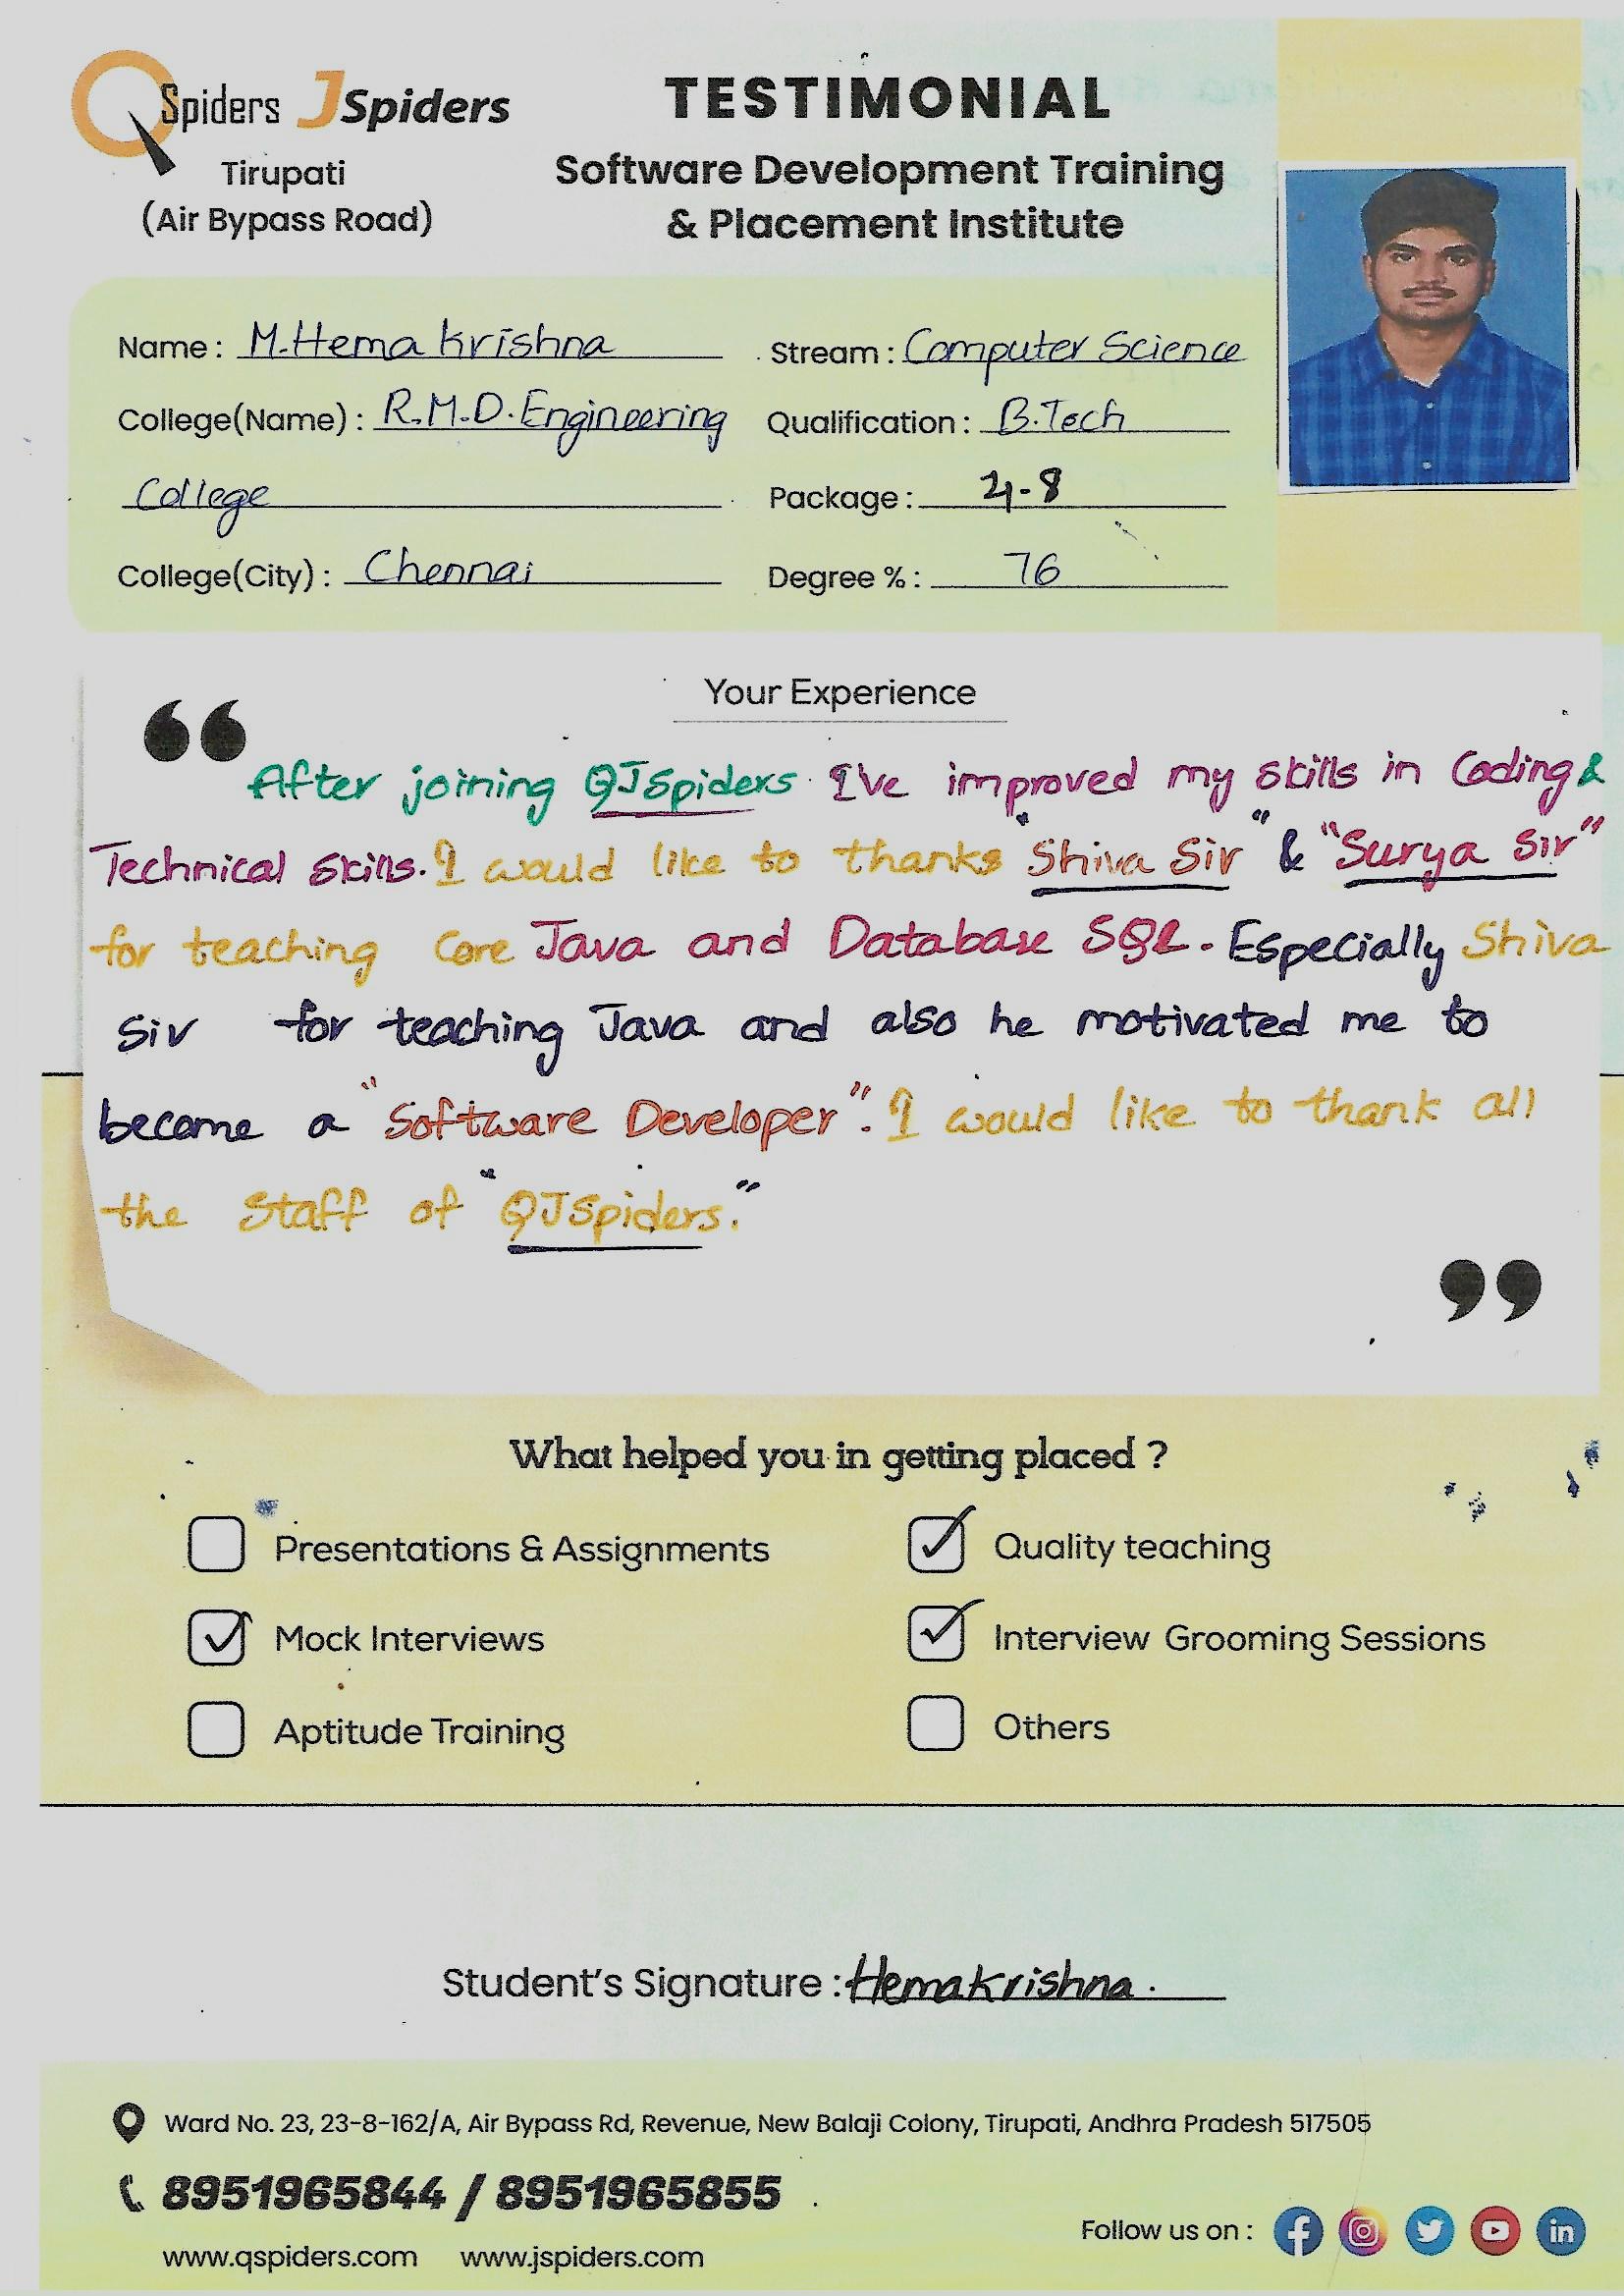 QSpiders JSpiders
Tirupati
(Air Bypass Road)
TESTIMONIAL
Software Development Training
& Placement Institute
Name : M.Hema Krishna
Stream : Computer Science
College(Name) : R.M.D.Engineering
Qualification : B.Tech
College
Package : 4-8
College(City) : Chennai
Degree % : 76
Your Experience
“After joining QJSpiders I've improved my skills in Coding &
Technical Skills. I would like to thanks "Shiva Sir" & "Surya Sir"
for teaching Core Java and Database SQL. Especially Shiva
Sir for teaching Java and also he motivated me to
become a "Software Developer". I would like to thank all
the Staff of "QJSpiders."
”
What helped you in getting placed ?
Presentations & Assignments
Quality teaching
Mock Interviews
Interview Grooming Sessions
Aptitude Training
Others
Student's Signature : Hemakrishna.
Ward No. 23, 23-8-162/A, Air Bypass Rd, Revenue, New Balaji Colony, Tirupati, Andhra Pradesh 517505
8951965844 / 8951965855
Follow us on :
www.qspiders.com www.jspiders.com